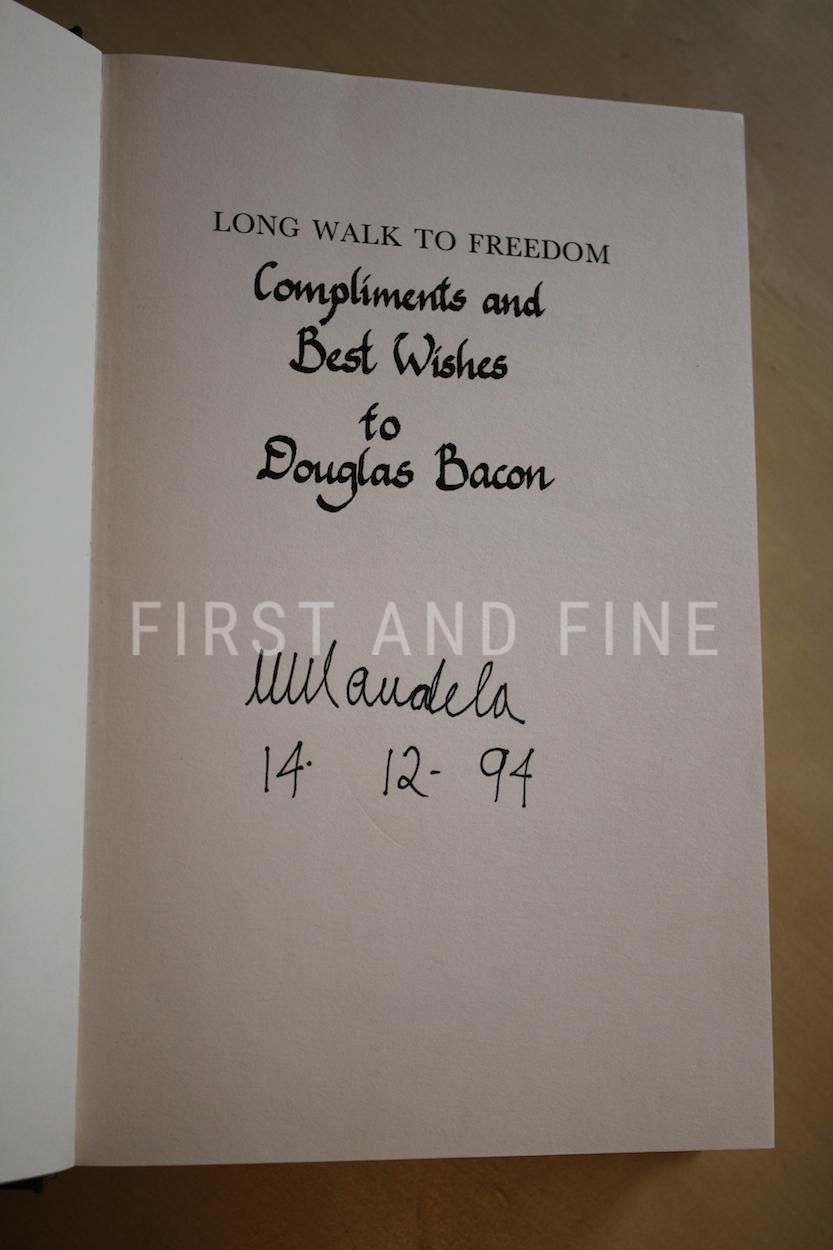 LONG WALK TO FREEDOM
Compliments and
Best Wishes
to
Douglas Bacon
FIRST AND FINE
NMandela
14. 12- 94